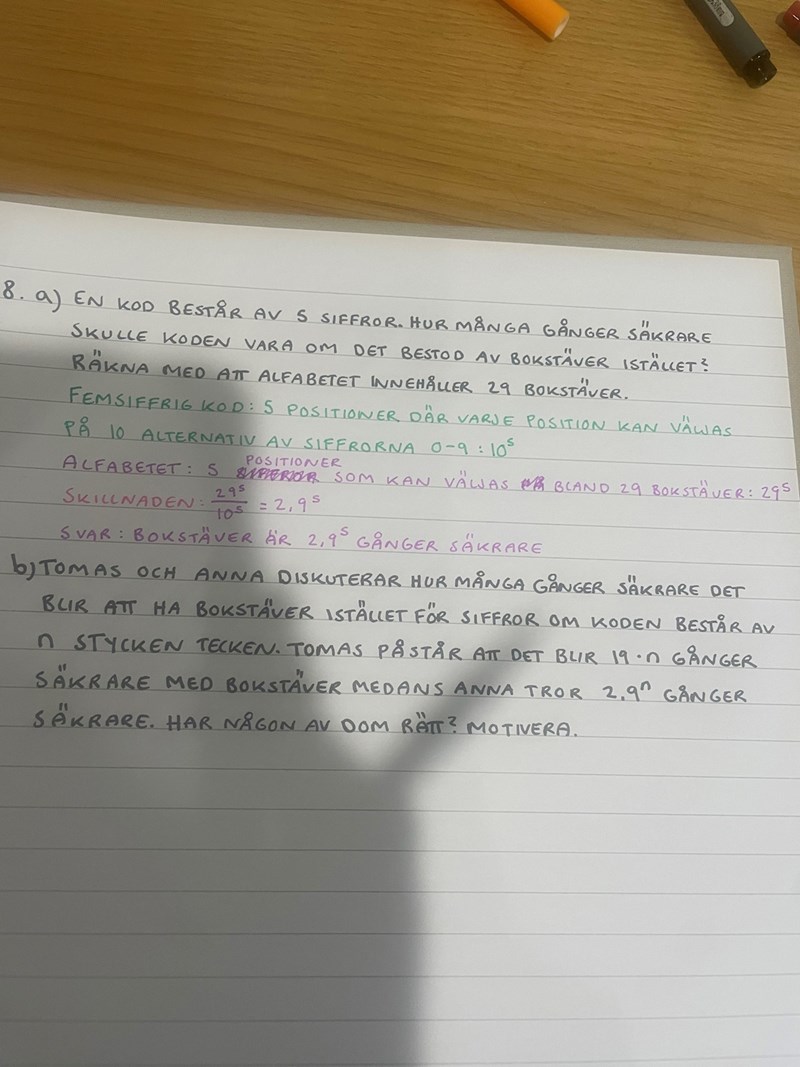 8. a) EN KOD BESTÅR AV 5 SIFFROR. HUR MÅNGA GÅNGER SÄKRARE
SKULLE KODEN VARA OM DET BESTOD AV BOKSTÄVER ISTÄLLET?
RÄKNA MED ATT ALFABETET INNEHÅLLER 29 BOKSTÄVER.
FEMSIFFRIG KOD: 5 POSITIONER DÄR VARJE POSITION KAN VÄLJAS
PÅ 10 ALTERNATIV AV SIFFRORNA 0-9: 10⁵
ALFABETET: 5 POSITIONER SOM KAN VÄLJAS BLAND 29 BOKSTÄVER: 29⁵
SKILLNADEN: 29⁵/10⁵ = 2,9⁵
SVAR: BOKSTÄVER ÄR 2,9⁵ GÅNGER SÄKRARE
b) TOMAS OCH ANNA DISKUTERAR HUR MÅNGA GÅNGER SÄKRARE DET
BLIR ATT HA BOKSTÄVER ISTÄLLET FÖR SIFFROR OM KODEN BESTÅR AV
n STYCKEN TECKEN. TOMAS PÅSTÅR ATT DET BLIR 19·n GÅNGER
SÄKRARE MED BOKSTÄVER MEDANS ANNA TROR 2,9ⁿ GÅNGER
SÄKRARE. HAR NÅGON AV DOM RÄTT? MOTIVERA.